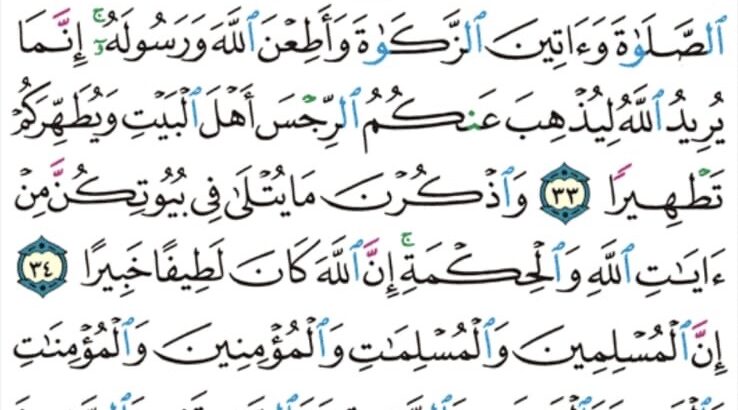 ٱلصَّلَوٰةَ وَءَاتِينَ ٱلزَّكَوٰةَ وَأَطِعْنَ ٱللَّهَ وَرَسُولَهُۥٓ ۚ إِنَّمَا
يُرِيدُ ٱللَّهُ لِيُذْهِبَ عَنكُمُ ٱلرِّجْسَ أَهْلَ ٱلْبَيْتِ وَيُطَهِّرَكُمْ
تَطْهِيرًا ٣٣ وَٱذْكُرْنَ مَا يُتْلَىٰ فِي بُيُوتِكُنَّ مِنْ
ءَايَٰتِ ٱللَّهِ وَٱلْحِكْمَةِ ۚ إِنَّ ٱللَّهَ كَانَ لَطِيفًا خَبِيرًا ٣٤
إِنَّ ٱلْمُسْلِمِينَ وَٱلْمُسْلِمَٰتِ وَٱلْمُؤْمِنِينَ وَٱلْمُؤْمِنَٰتِ